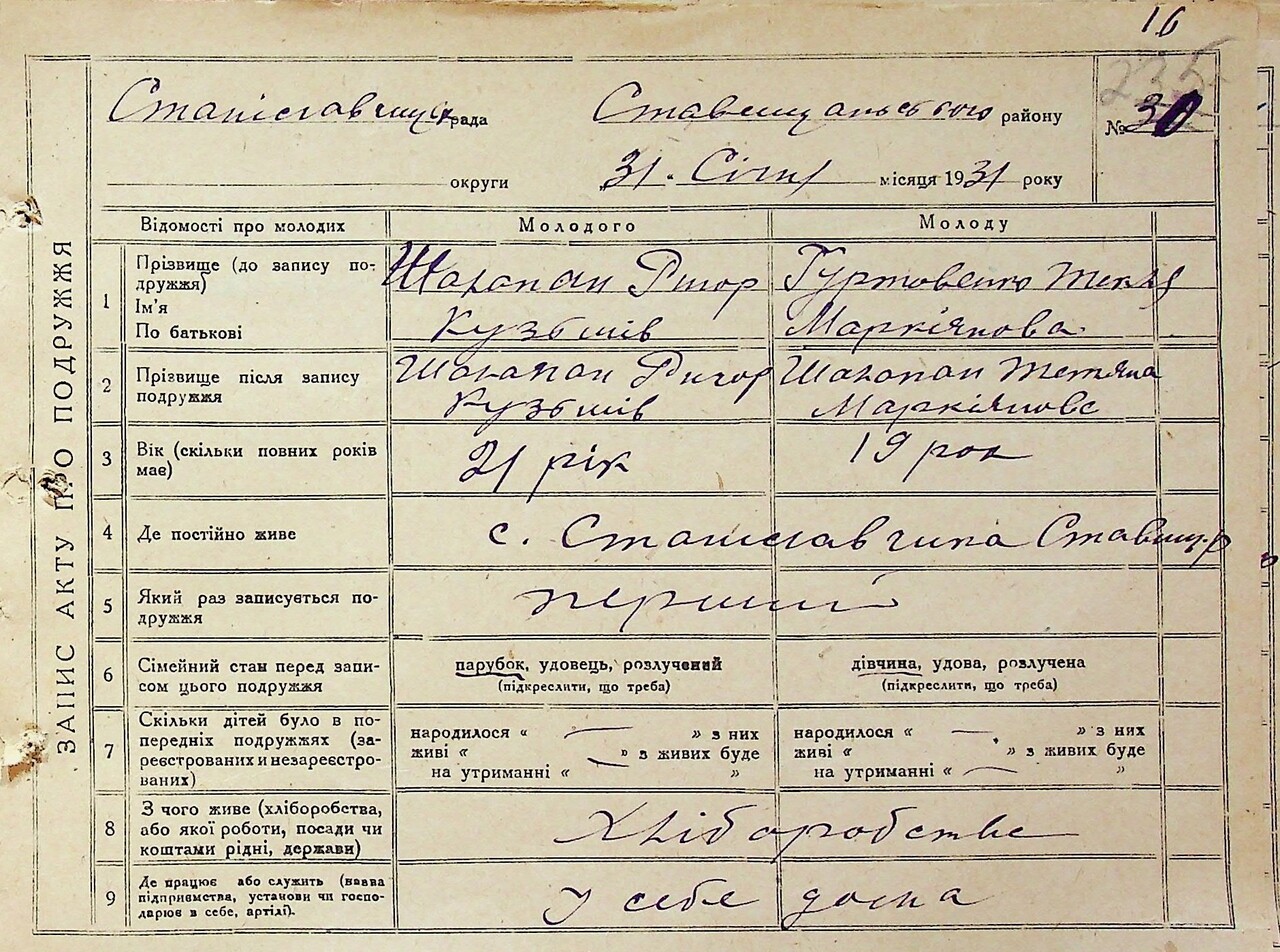 16
235
Станіславчицька рада Ставищанського району № 30
округи 31. Січня місяця 1931 року
ЗАПИС АКТУ ПРО ПОДРУЖЖЯ
Відомості про молодих Молодого Молоду
1 Прізвище (до запису подружжя) Шахапан Ригор Гуртовенко Текля
Ім'я
По батькові Кузьмів Маркіянова
2 Прізвище після запису Шахапан Ригор Шахапан Тетяна
подружжя Кузьмів Маркіянове
3 Вік (скільки повних років 21 рік 19 рок
має)
4 Де постійно живе с. Станіславчика Ставищ. р
5 Який раз записується по-
дружжя перший
6 Сімейний стан перед запи- парубок, удовець, розлучений дівчина, удова, розлучена
сом цього подружжя (підкреслити, що треба) (підкреслити, що треба)
7 Скільки дітей було в по- народилося « — » з них народилося « — » з них
передніх подружжях (за- живі « » з живих буде живі « » з живих буде
реєстрованих и незареєстро- на утриманні « — » на утриманні « — »
ваних)
8 З чого живе (хліборобства,
або якої роботи, посади чи Хліборобстве
коштами рідні, держави)
9 Де працює або служить (назва
підприємства, установи чи госпо- у себе дома
дарює в себе, артілі).